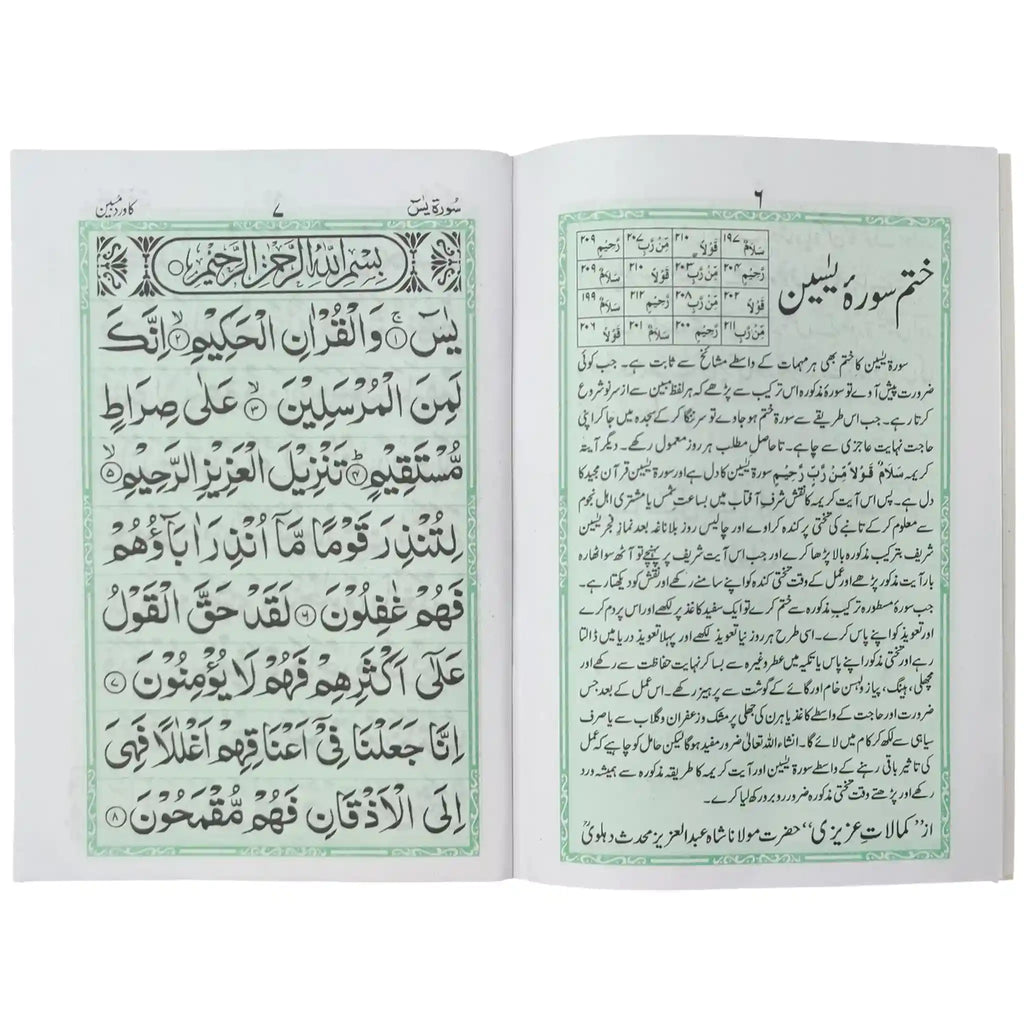 ۶
ختم سورۂ یٰسٓین
سَلَامٌ ۱۹۷ قَوْلًا ۲۱۰ مِّنْ رَّبٍّ ۲۰۷ رَّحِیْمٍ ۲۰۹
رَّحِیْمٍ ۲۰۴ مِّنْ رَّبٍّ ۲۰۳ قَوْلًا ۲۱۰ سَلَامٌ ۲۰۹
قَوْلًا ۲۰۲ مِّنْ رَّبٍّ ۲۰۸ رَّحِیْمٍ ۲۱۲ سَلَامٌ ۱۹۹
مِّنْ رَّبٍّ ۲۱۱ رَّحِیْمٍ ۲۰۰ سَلَامٌ ۲۰۱ قَوْلًا ۲۰۶
سورۃ یٰسٓین کا ختم بھی ہر مہمات کے واسطے مشائخ سے ثابت ہے۔ جب کوئی
ضرورت پیش آوے تو سورۃ مذکورہ اس ترکیب سے پڑھے کہ ہر لفظ مبین سے از سر نو شروع
کرتا رہے۔ جب اس طریقے سے سورۃ ختم ہو جاوے تو سر ننگا کر کے سجدہ میں جا کر اپنی
حاجت نہایت عاجزی سے چاہے۔ تا حاصل مطلب ہر روز معمول رکھے۔ دیگر آیتہ
کریمہ سَلَامٌ قَوْلًا مِّنْ رَّبٍّ رَّحِیْمٍ سورۃ یٰسٓین کا دل ہے اور سورۃ یٰسٓین قرآن مجید کا
دل ہے۔ پس اس آیت کریمہ کا نقش شرف آفتاب میں بساعت شمس یا مشتری اہل نجوم
سے معلوم کر کے تانبے کی تختی پر کندہ کراوے اور چالیس روز بلا ناغہ بعد نماز فجر یٰسٓین
شریف بترکیب مذکورہ بالا پڑھا کرے اور جب اس آیت شریف پر پہنچے تو آٹھ سو اٹھارہ
بار آیت مذکور پڑھے اور عمل کے وقت تختی کندہ کو اپنے سامنے رکھے اور نقش کو دیکھتا رہے۔
جب سورۃ مسطورہ ترکیب مذکورہ سے ختم کرے تو ایک سفید کاغذ پر لکھے اور اس پر دم کرے
اور تعویذ کو اپنے پاس کرے۔ اسی طرح ہر روز نیا تعویذ لکھے اور پہلا تعویذ دریا میں ڈالتا
رہے اور تختی مذکور اپنے پاس یا تکیہ میں عطر وغیرہ سے بسا کر نہایت حفاظت سے رکھے اور
مچھلی، ہینگ، پیاز و لہسن خام اور گائے کے گوشت سے پرہیز رکھے۔ اس عمل کے بعد جس
ضرورت اور حاجت کے واسطے کاغذ یا ہرن کی جھلی پر مشک و زعفران و گلاب سے یا صرف
سیاہی سے لکھ کر کام میں لائے گا۔ انشاء اللہ تعالیٰ ضرور مفید ہوگا لیکن حامل کو چاہیے کہ عمل
کی تاثیر باقی رہنے کے واسطے سورۃ یٰسٓین اور آیت کریمہ کا طریقہ مذکورہ سے ہمیشہ ورد
رکھے اور پڑھتے وقت تختی مذکورہ ضرور روبرو رکھ لیا کرے۔
از ”کمالاتِ عزیزی“ حضرت مولانا شاہ عبد العزیز محدث دہلویؒ
سُوْرَۃ یٰسٓ
۷
کا ورد مُبین
بِسْمِ اللّٰهِ الرَّحْمٰنِ الرَّحِیْمِ ○
یٰسٓ ﴿۱﴾ وَالْقُرْاٰنِ الْحَكِیْمِ ﴿۲﴾ اِنَّكَ
لَمِنَ الْمُرْسَلِیْنَ ﴿۳﴾ عَلٰی صِرَاطٍ
مُّسْتَقِیْمٍ ﴿۴﴾ تَنْزِیْلَ الْعَزِیْزِ الرَّحِیْمِ ﴿۵﴾
لِتُنْذِرَ قَوْمًا مَّآ اُنْذِرَ اٰبَآؤُهُمْ
فَهُمْ غٰفِلُوْنَ ﴿۶﴾ لَقَدْ حَقَّ الْقَوْلُ
عَلٰٓی اَكْثَرِهِمْ فَهُمْ لَا یُؤْمِنُوْنَ ﴿۷﴾
اِنَّا جَعَلْنَا فِیْٓ اَعْنَاقِهِمْ اَغْلٰلًا فَهِیَ
اِلَی الْاَذْقَانِ فَهُمْ مُّقْمَحُوْنَ ﴿۸﴾